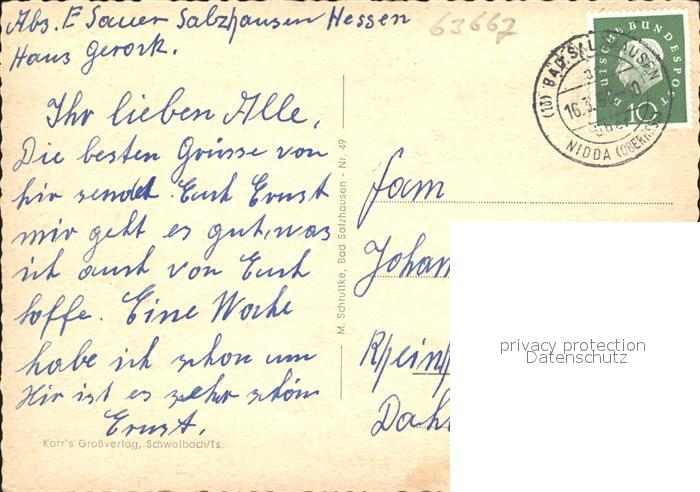 Abs. E Sauer Salzhausen Hessen
Haus Gerock.
63667
Ihr lieben Alle,
Die besten Grüsse von
hir sendet Euch Ernst
mir geht es gut, was
ich auch von Euch
hoffe. Eine Woche
habe ich schon um
Hir ist es sehr schön
Ernst.
Korr's Großverlag, Schwalbach/Ts.
M. Schruttke, Bad Salzhausen - Nr. 49
DEUTSCHE BUNDESPOST
10
(16) BAD SALZHAUSEN
NIDDA (OBERHESS)
Fam
Johan
Rhein
Dah
privacy protection
Datenschutz